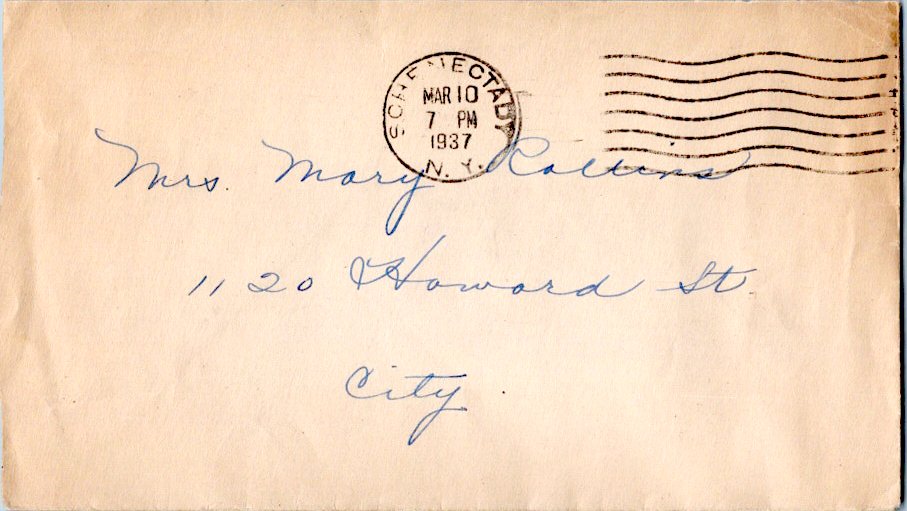 SCHENECTADY
MAR 10
7 PM
1937
N. Y.
Mrs. Mary Rollins
1120 Howard St.
City